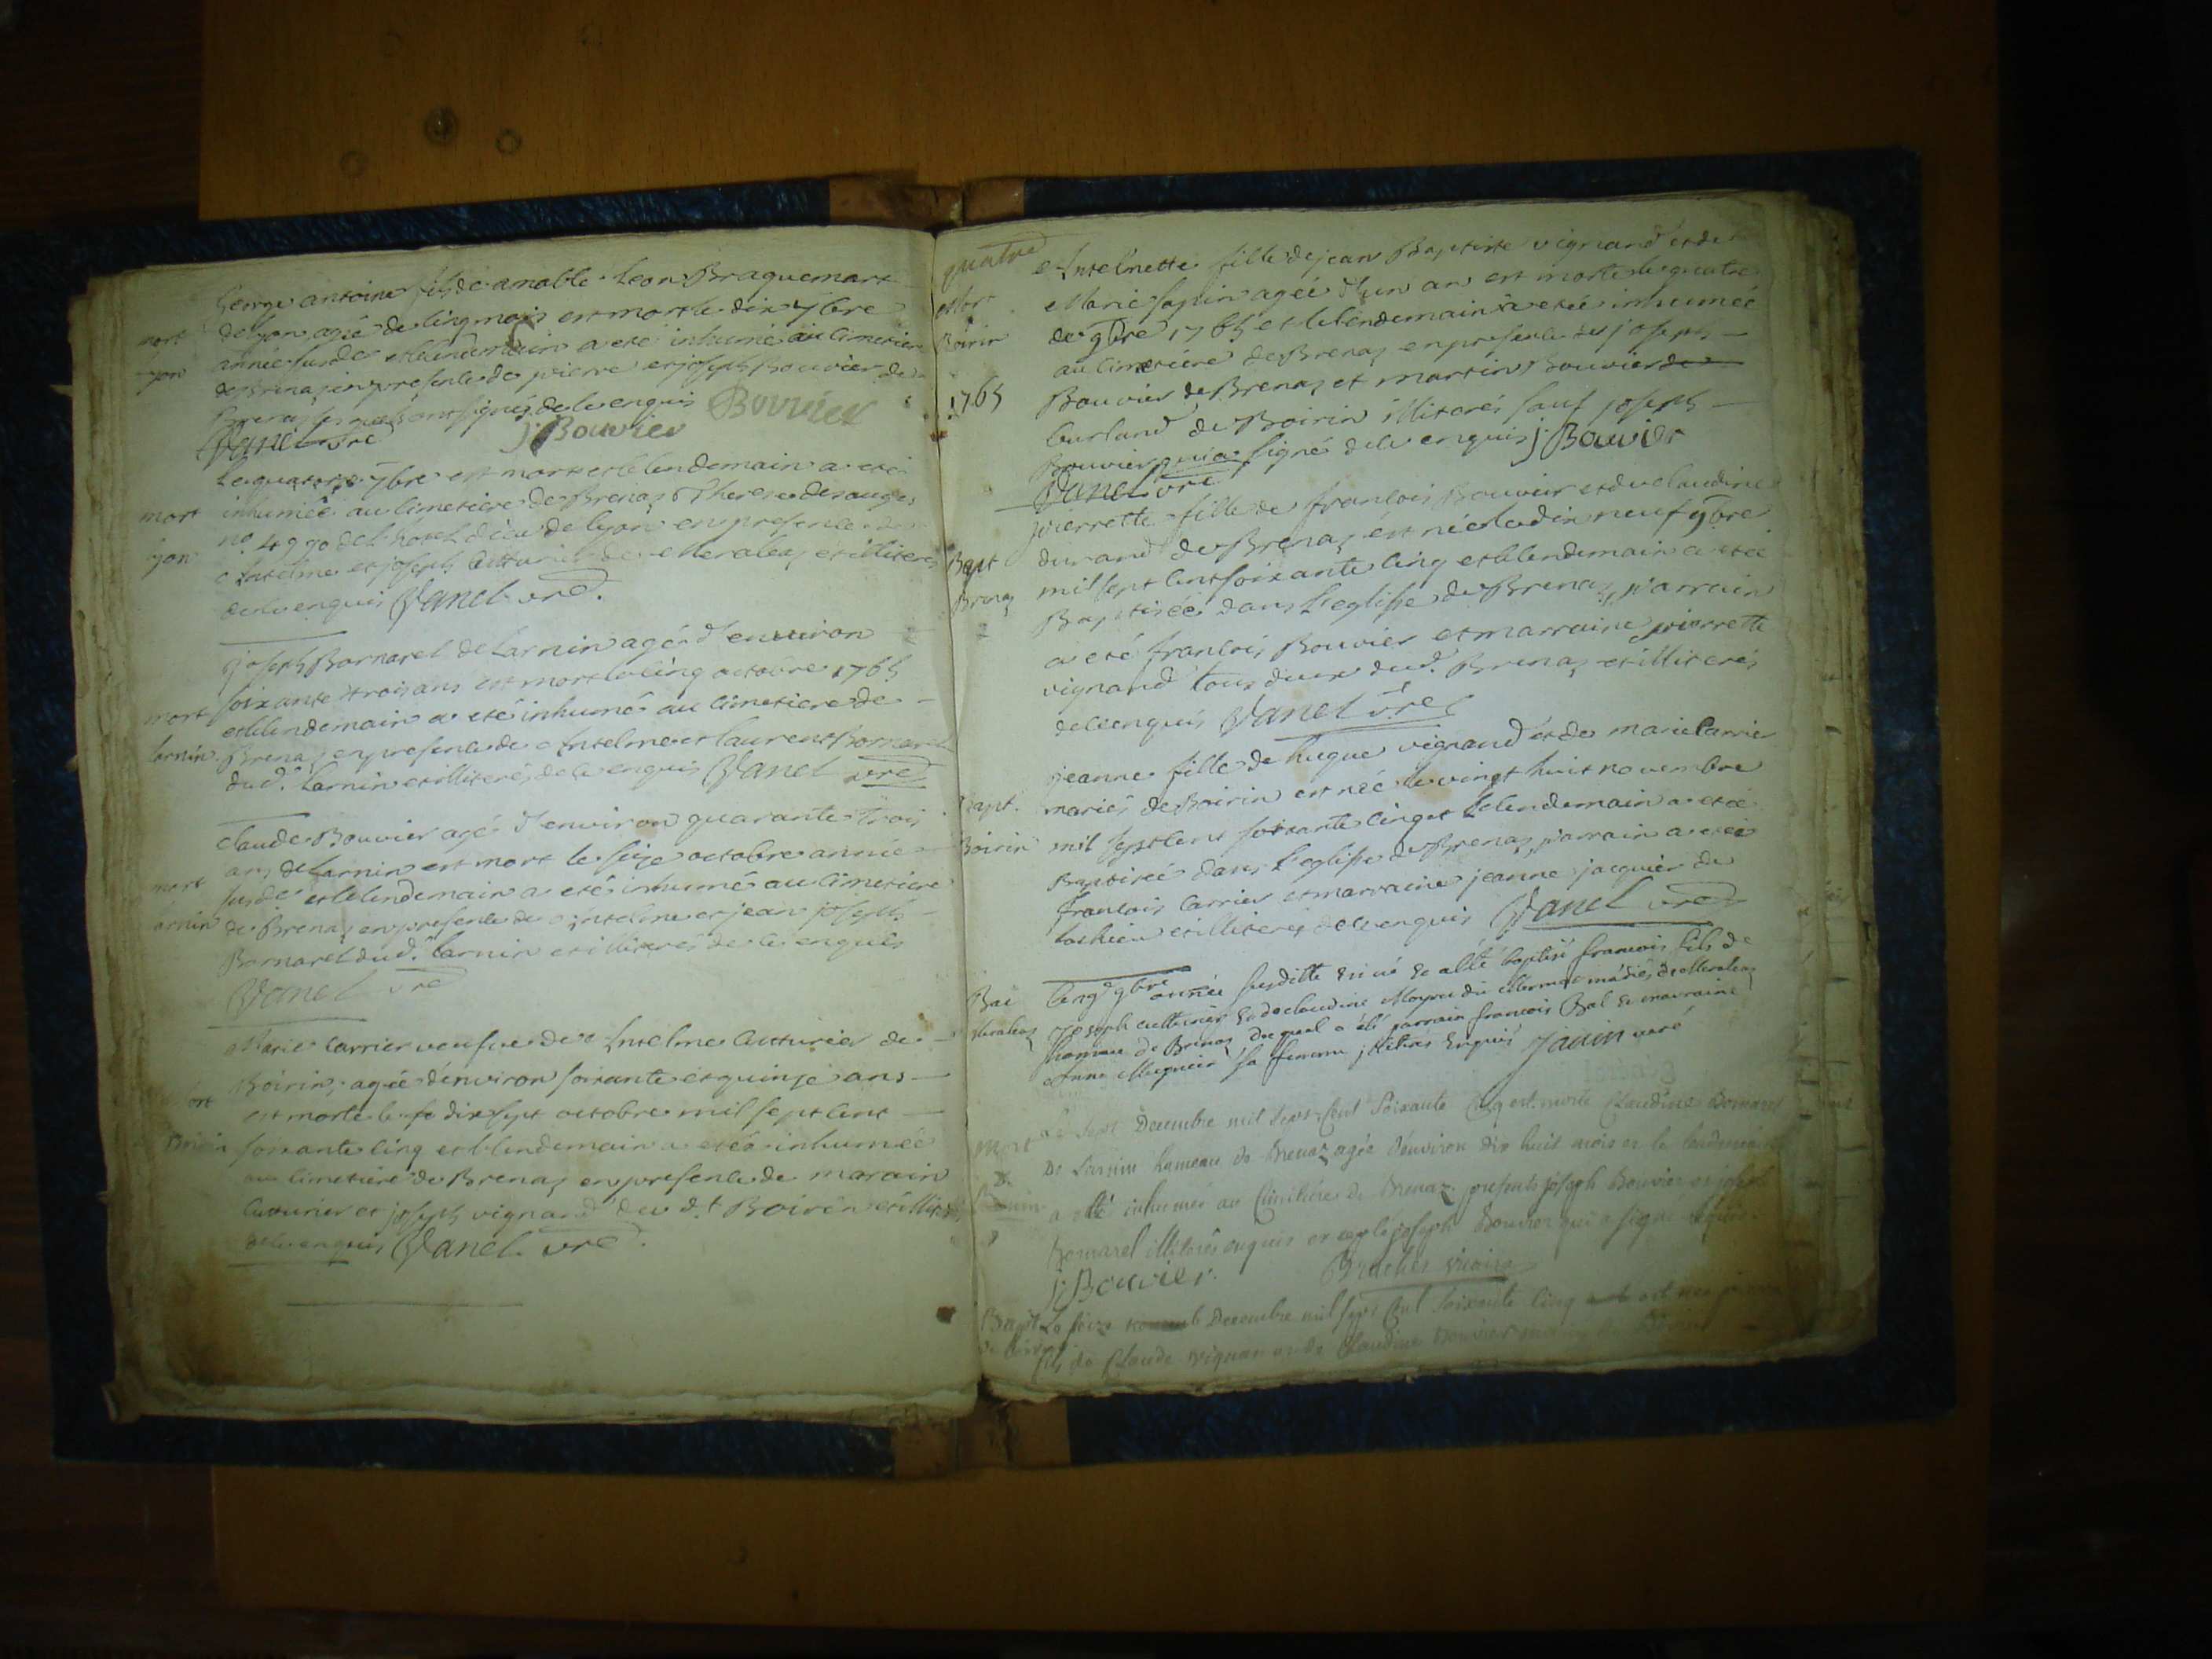 George antoine fils de amable Leon Braquemart
mort de lyon agé de cinq mois est mort le dix 7bre
année susd.e et lendemain a eté inhumé au cimetiere
yon de Brenaz en presence de pierre et joseph Bouvier de
Brenaz lesquels ont signés de ce enquis Bouvier
Vanel vre j: Bouvier
Le quatorze 7bre est morte et le lendemain a eté
mort inhumée au cimetiere de Brenaz Therese desanges
no. 4990 de l'hotel dieu de lyon en presence de
yon Antelme et joseph Cutturier de Meraleaz et illiterés
de ce enquis Vanel vre.
joseph Bornarel de Larnin agé d'environ
soixante trois ans est mort le cinq octobre 1765
mort et le lendemain a eté inhumé au cimetiere de
larnin. Brenaz en presence de Antelme et laurent Bornarel
dud. Larnin et illiterés de ce enquis Vanel vre
claude Bouvier agé d'environ quarante trois
ans de Larnin est mort le seize octobre année
mort susd.e et le lendemain a eté inhumé au cimetiere
arnin de Brenaz en presence de Antelme et jean joseph
Bornarel dud. Larnin et illiterés de ce enquis
Vanel vre
Marie Carrier veufve de Antelme Cutturier de
Boirin, agée d'environ soixante et quinze ans
ort est morte le dix sept octobre mil sept cent
Boirin soixante cinq et lendemain a etée inhumée
au cimetiere de Brenaz en presence de
Cutturier et joseph vignand du d.t Boirin et illiterés
de ce enquis Vanel vre.
quatre
Antelmette fille de jean Baptiste vignand et de
Marie sapin agée d'un an est morte le quatre
Boirin de 9bre 1765 et le lendemain a etée inhumée
au cimetiere de Brenaz en presence de joseph
1765 Bouvier de Brenaz et martin Bouvier
de Boirin illiterés sauf joseph
Bouvier qui a signé de ce enquis j: Bouvier
Vanel vre
pierrette fille de francois Bouvier et de claudine
durand de Brenaz est née le dix neuf 9bre
Bapt mil sept cent soixante cinq et le lendemain a eteé
Brenaz Baptisée dans l'eglise de Brenaz, parrain
a eté francois Bouvier et marraine pierrette
vignand tous deux dud. Brenaz et illiterés
de ce enquis Vanel vre
jeanne fille de hugue vignand et de marie Carrier
Bapt. mariés de Boirin est née le vingt huit novembre
Boirin mil sept cent soixante cinq et le lendemain a eteé
Baptisée dans l'eglise de Brenaz, parrain a eteé
francois Carrier et marraine jeanne jacquier de
lochieu et illiterés de ce enquis Vanel vre
9bre année susditte est né et a été baptisé francois fils de
Joseph cutturier et de claudine
Meraleaz hameau de Brenaz duquel a été parrain francois Bal et marraine
Anne sa femme illiterés enquis Janin curé
mort Le Sept Decembre mil Sept Cent Soixante Cinq est morte Claudine Bornarel
De Larnin hameau de Brenaz agée d'environ dix huit mois et le lendemain
a été inhumée au Cimitiere de Brenaz. presents joseph Bouvier et joseph
Bornarel illiterés enquis excepté joseph Bouvier qui a signé
j: Bouvier. vicaire
Bapt Le seize Decembre mil Sept Cent Soixante Cinq est
fils de Claude vignan et de Claudine Bouvier